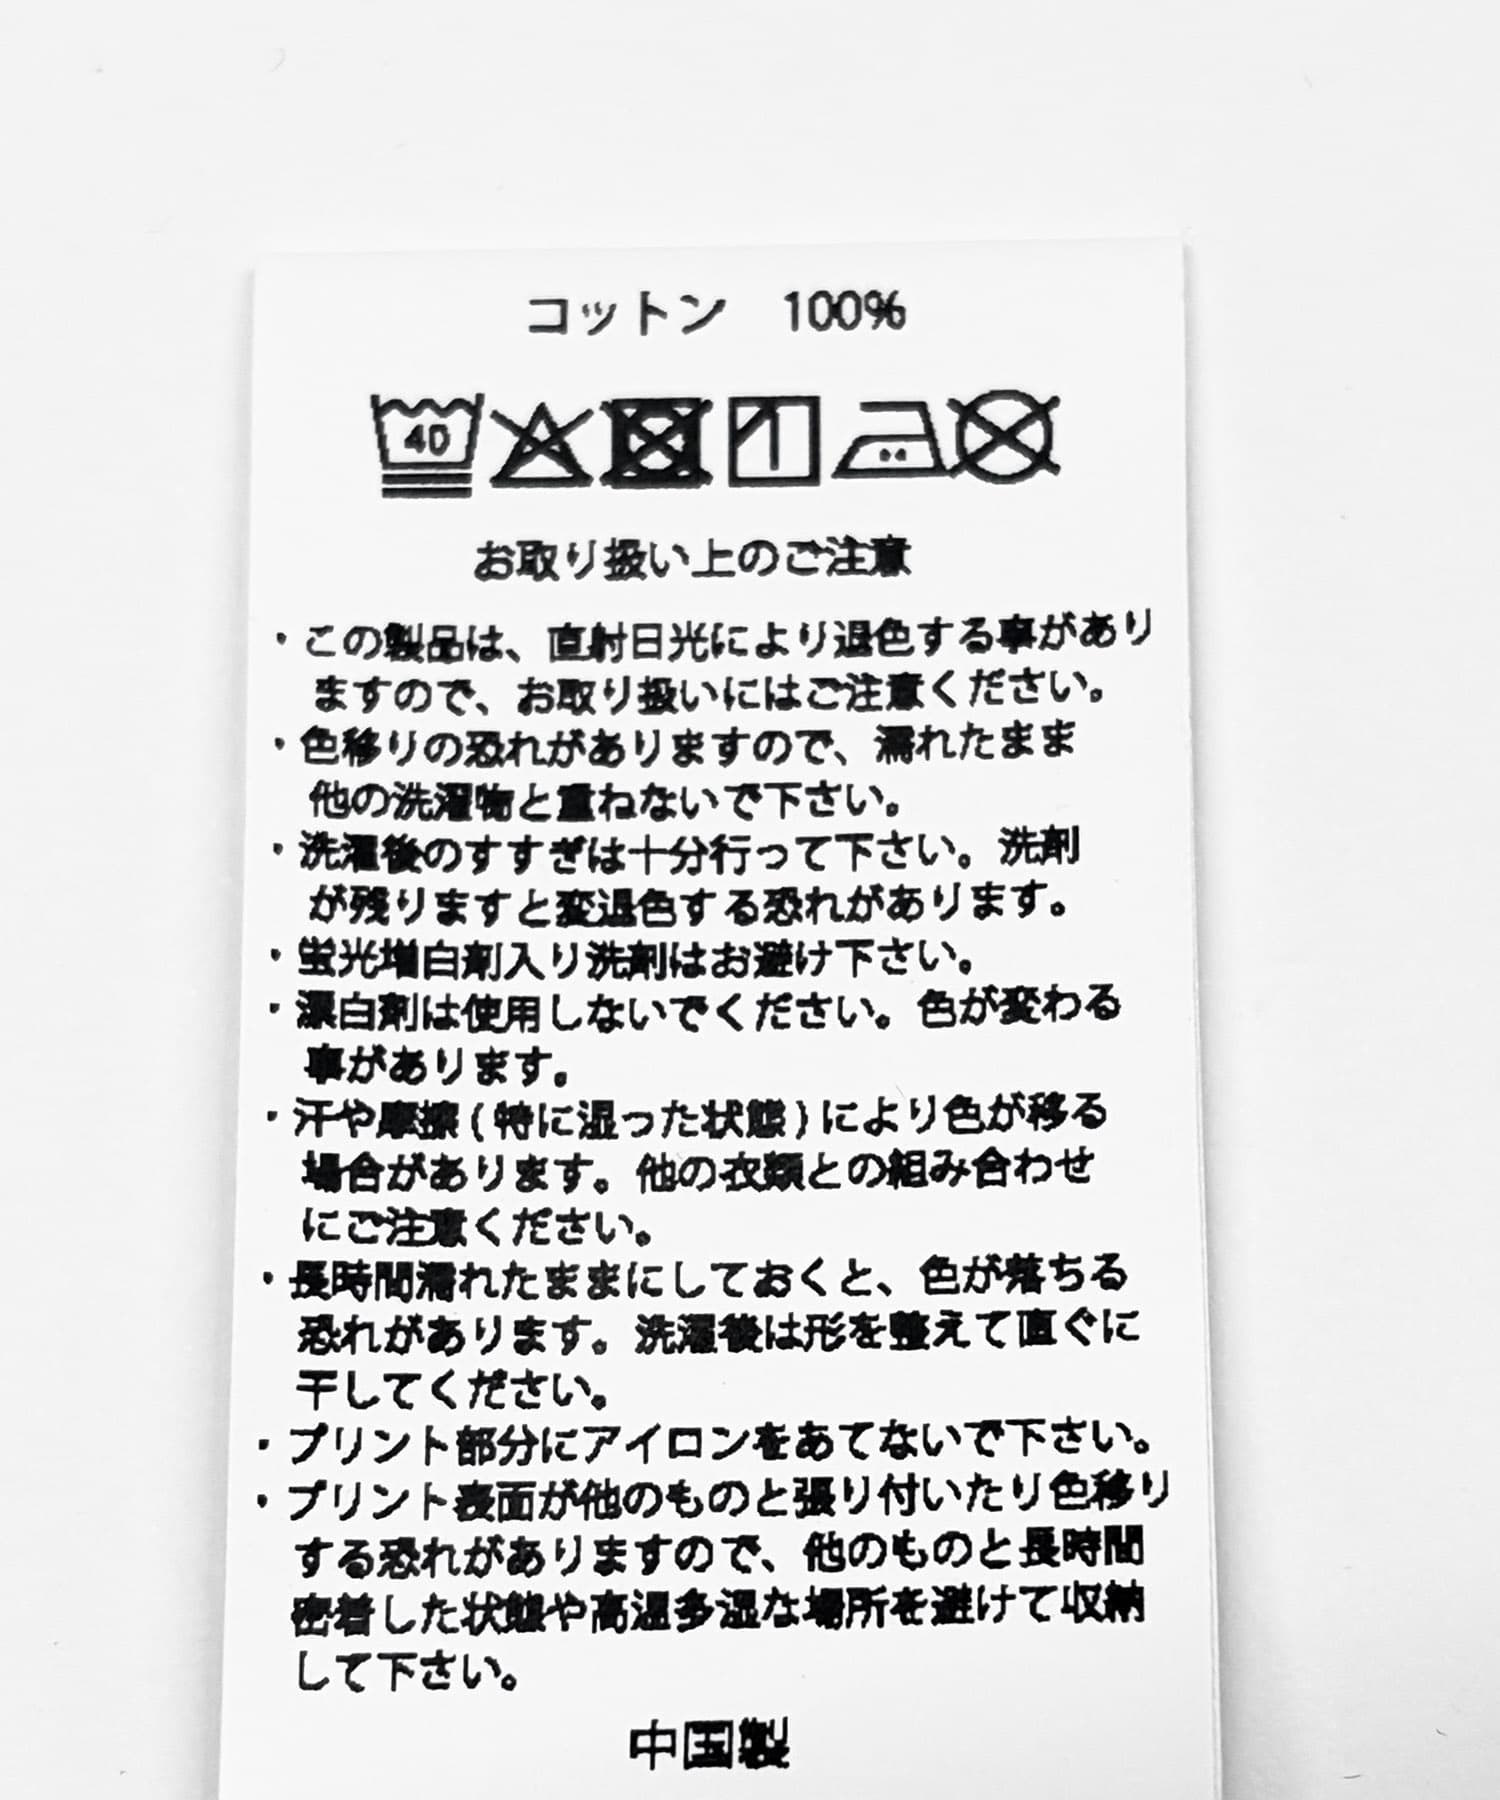 コットン　100%
40
お取り扱い上のご注意
・この製品は、直射日光により退色する事があり
ますので、お取り扱いにはご注意ください。
・色移りの恐れがありますので、濡れたまま
他の洗濯物と重ねないで下さい。
・洗濯後のすすぎは十分行って下さい。洗剤
が残りますと変退色する恐れがあります。
・蛍光増白剤入り洗剤はお避け下さい。
・漂白剤は使用しないでください。色が変わる
事があります。
・汗や摩擦(特に湿った状態)により色が移る
場合があります。他の衣類との組み合わせ
にご注意ください。
・長時間濡れたままにしておくと、色が落ちる
恐れがあります。洗濯後は形を整えて直ぐに
干してください。
・プリント部分にアイロンをあてないで下さい。
・プリント表面が他のものと張り付いたり色移り
する恐れがありますので、他のものと長時間
密着した状態や高温多湿な場所を避けて収納
して下さい。
中国製